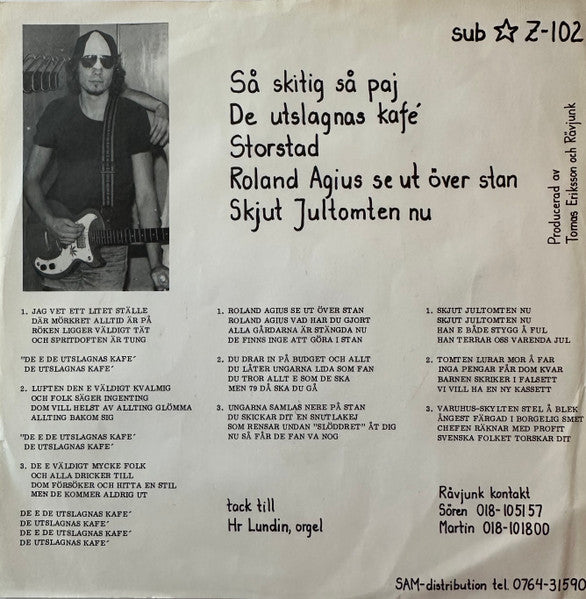 sub ☆ Z-102
Så skitig så paj
De utslagnas kafé
Storstad
Roland Agius se ut över stan
Skjut Jultomten nu
Producerad av
Tomas Eriksson och Rävjunk
1. JAG VET ETT LITET STÄLLE
DÄR MÖRKRET ALLTID ÄR PÅ
RÖKEN LIGGER VÄLDIGT TÄT
OCH SPRITDOFTEN ÄR TUNG
"DE E DE UTSLAGNAS KAFE´
DE UTSLAGNAS KAFE´
2. LUFTEN DEN E VÄLDIGT KVALMIG
OCH FOLK SÄGER INGENTING
DOM VILL HELST AV ALLTING GLÖMMA
ALLTING BAKOM SIG
"DE E DE UTSLAGNAS KAFE´
DE UTSLAGNAS KAFE´
3. DE E VÄLDIGT MYCKE FOLK
OCH ALLA DRICKER TILL
DOM FÖRSÖKER OCH HITTA EN STIL
MEN DE KOMMER ALDRIG UT
DE E DE UTSLAGNAS KAFE´
DE UTSLAGNAS KAFE´
DE E DE UTSLAGNAS KAFE´
DE UTSLAGNAS KAFE´
1. ROLAND AGIUS SE UT ÖVER STAN
ROLAND AGIUS VAD HAR DU GJORT
ALLA GÅRDARNA ÄR STÄNGDA NU
DE FINNS INGE ATT GÖRA I STAN
2. DU DRAR IN PÅ BUDGET OCH ALLT
DU LÅTER UNGARNA LIDA SOM FAN
DU TROR ALLT E SOM DE SKA
MEN 79 DÅ SKA DU GÅ
3. UNGARNA SAMLAS NERE PÅ STAN
DU SKICKAR DIT EN SNUTLAKEJ
SOM RENSAR UNDAN "SLÖDDRET" ÅT DIG
NU SÅ FÅR DE FAN VA NOG
1. SKJUT JULTOMTEN NU
SKJUT JULTOMTEN NU
HAN E BÅDE STYGG Å FUL
HAN TERRAR OSS VARENDA JUL
2. TOMTEN LURAR MOR Å FAR
INGA PENGAR FÅR DOM KVAR
BARNEN SKRIKER I FALSETT
VI VILL HA EN NY KASSETT
3. VARUHUS-SKYLTEN STEL Å BLEK
ÅNGEST FÄRGAD I BORGELIG SMET
CHEFEN RÄKNAR MED PROFIT
SVENSKA FOLKET TORSKAR DIT
tack till
Hr Lundin, orgel
Rävjunk kontakt
Sören 018-105157
Martin 018-101800
SAM-distribution tel. 0764-31590